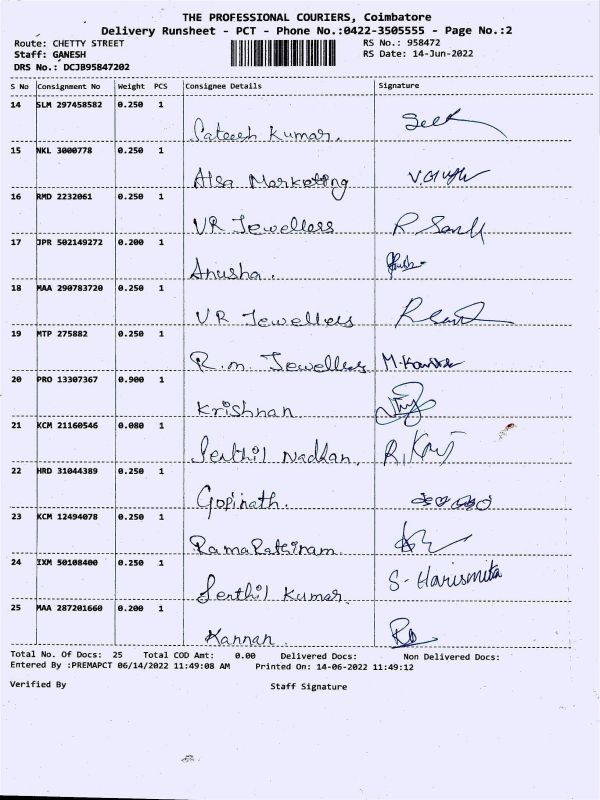 THE PROFESSIONAL COURIERS, Coimbatore
Delivery Runsheet - PCT - Phone No.:0422-3505555 - Page No.:2
Route: CHETTY STREET RS No.: 958472
Staff: GANESH RS Date: 14-Jun-2022
DRS No.: DCJB95847202
S No Consignment No Weight PCS Consignee Details Signature
14 SLM 297458582 0.250 1
Sateesh Kumar.
15 NKL 3000778 0.250 1
Alsa Marketing
16 RMD 2232061 0.250 1
VR Jewellers R
17 JPR 502149272 0.200 1
Anusha.
18 MAA 290783720 0.250 1
VR Jewellers
19 MTP 275882 0.250 1
R.m. Jewellers
20 PRO 13307367 0.900 1
Krishnan
21 KCM 21160546 0.080 1
Senthil Nadhan.
22 HRD 31044389 0.250 1
Gopinath.
23 KCM 12494078 0.250 1
RamaRathinam
24 IXM 50108400 0.250 1
Senthil Kumar. S- Harismita
25 MAA 287201660 0.200 1
Kannan.
Total No. Of Docs: 25 Total COD Amt: 0.00 Delivered Docs: Non Delivered Docs:
Entered By :PREMAPCT 06/14/2022 11:49:08 AM Printed On: 14-06-2022 11:49:12
Verified By Staff Signature